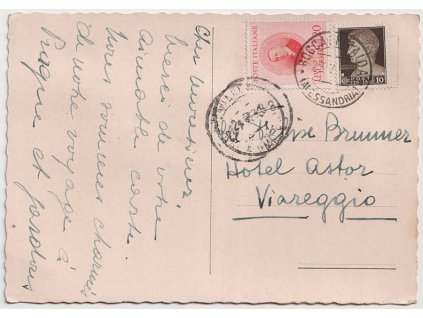 Cher Monsieur,
Merci de votre
aimable carte
nous sommes charmés
de notre voyage à
Prague et
POSTE ITALIANE
10
ROCCA
(ALESSANDRIA)
Brunner
Hotel Astor
Viareggio